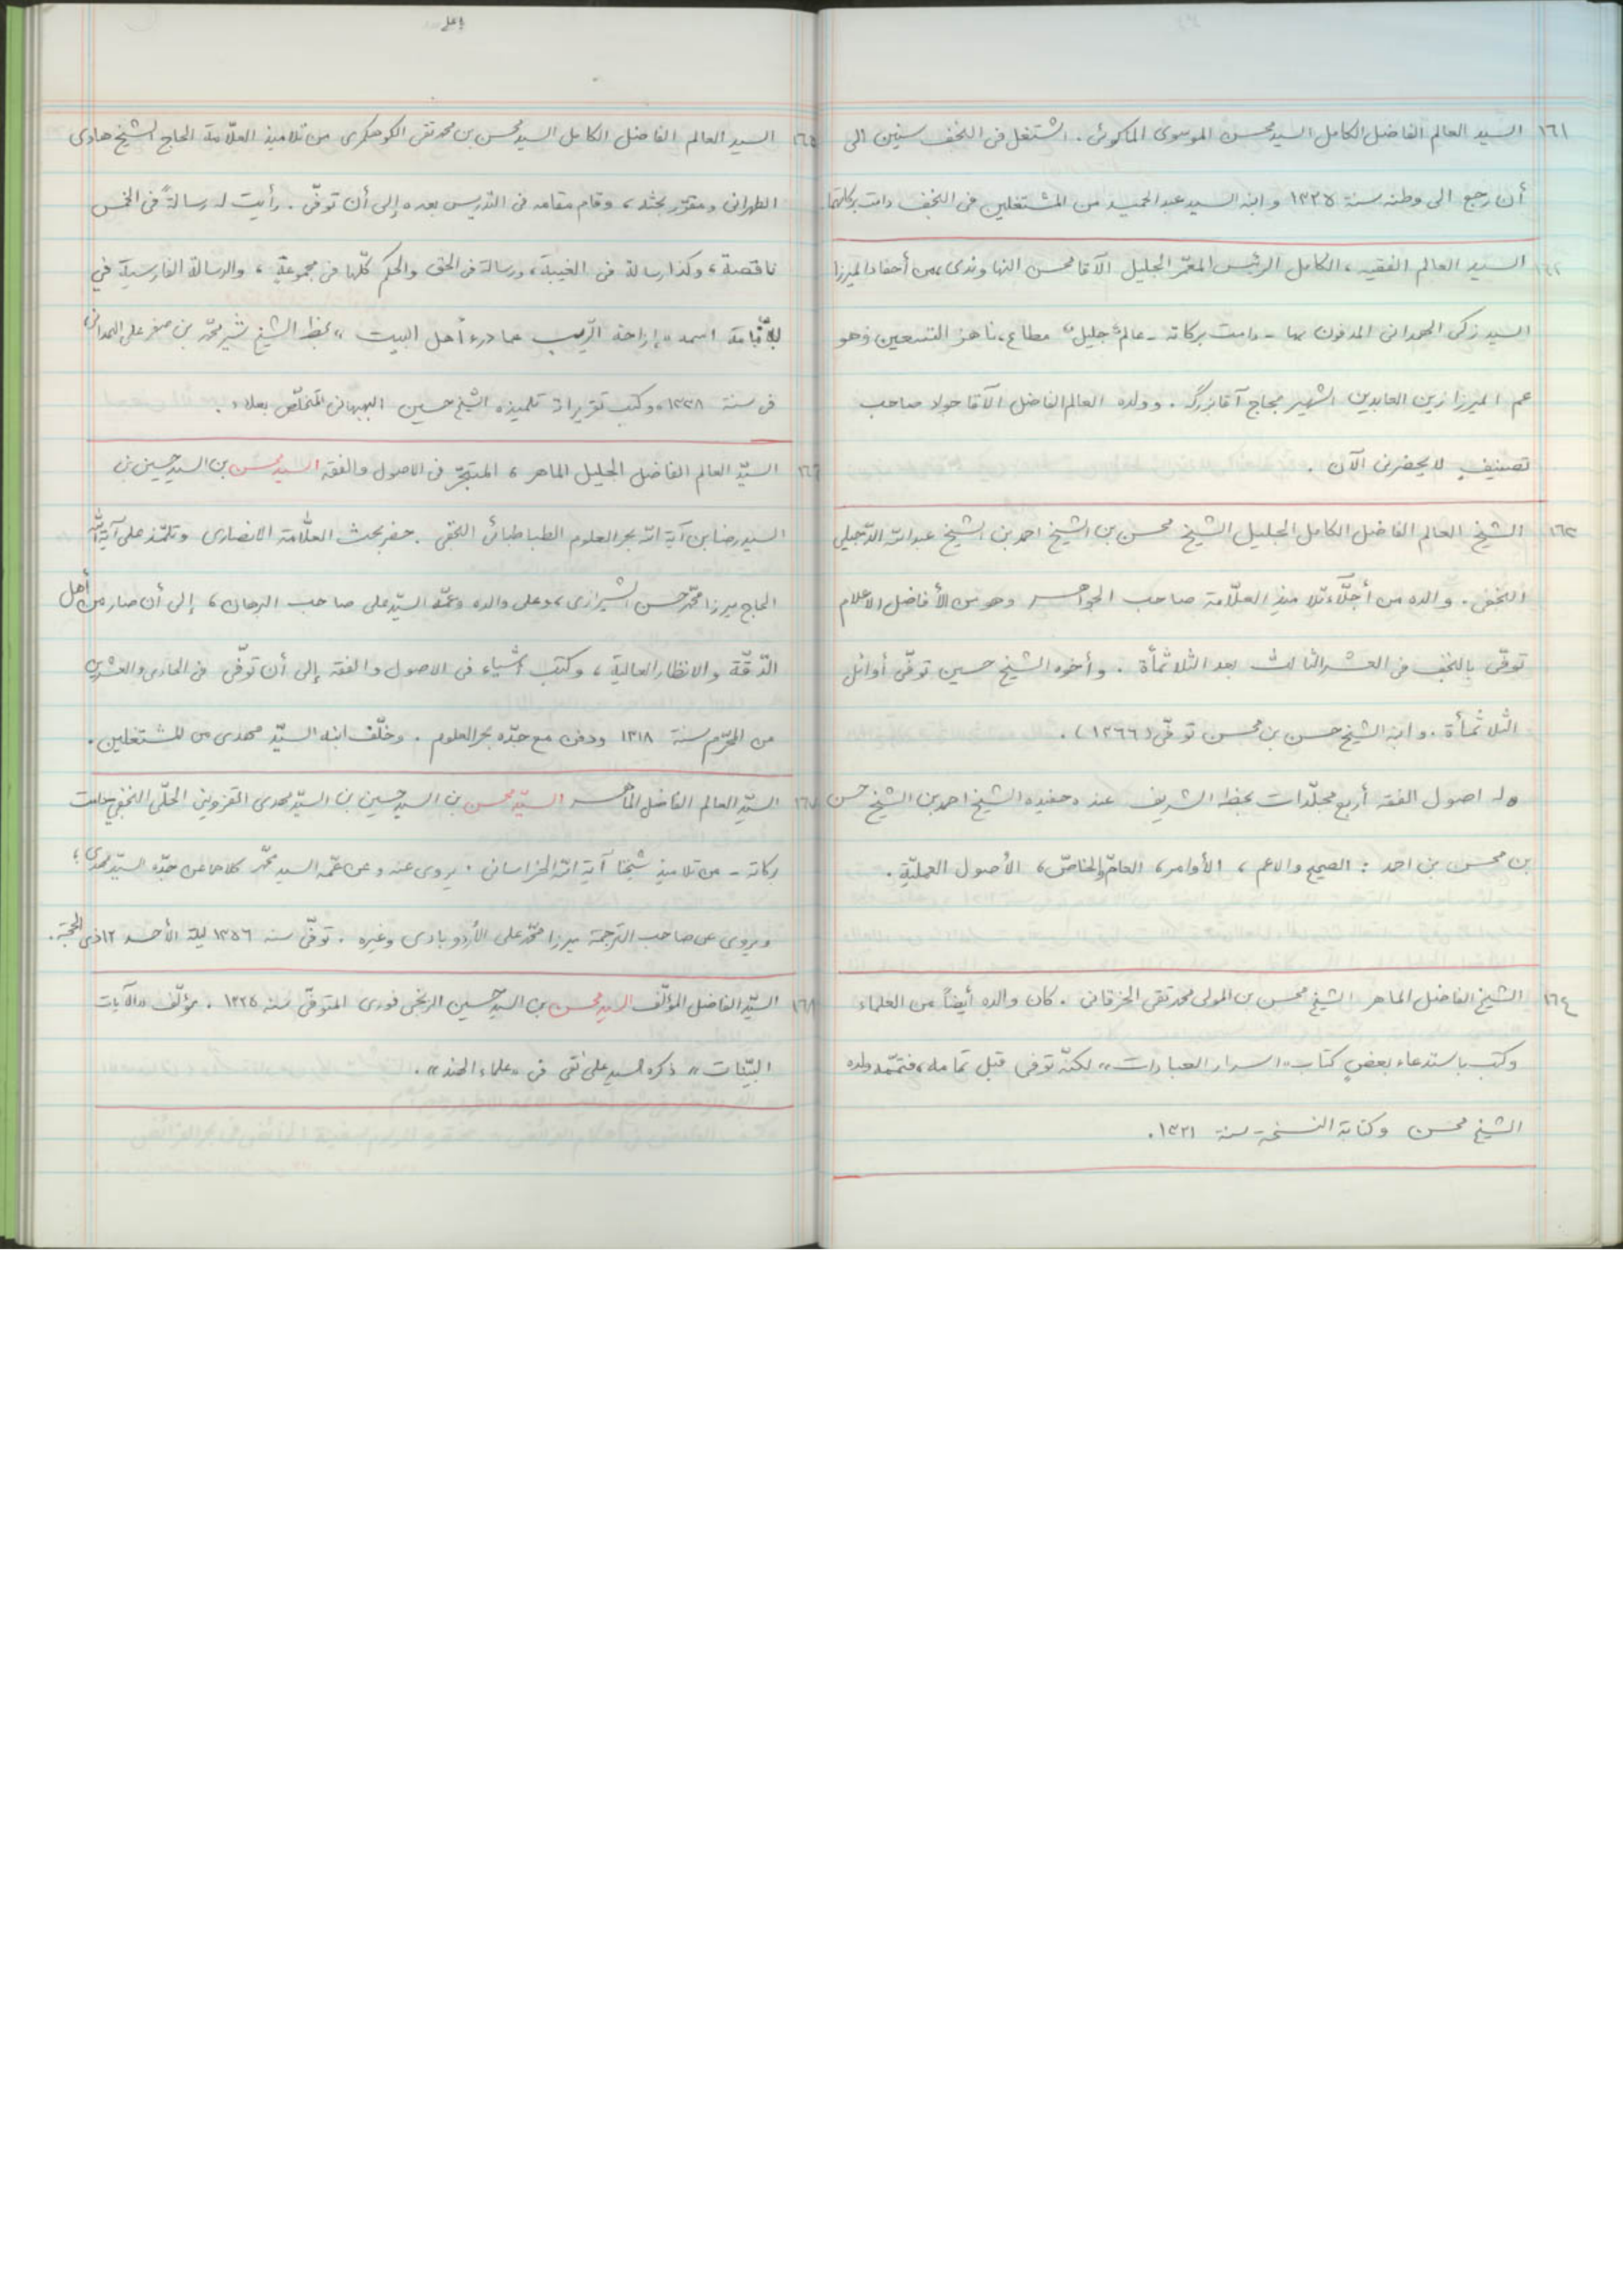 ١٦١ السيد العالم الفاضل الكامل السيد محسن الموسوى الماكوئى . اشتغل فى النجف سنين الى
أن رجع الى وطنه سنة ١٣٢٥ وابنه السيد عبد الحميد من المشتغلين فى النجف دامت بركاتهما.
١٦٢ السيد العالم الفقيه ، الكامل الرئيس المعمّر الجليل الآقا محسن النهاوندى ، من أحفاد الميرزا
السيد زكى الهمدانى المدفون بها - دامت بركاته - عالم جليل مطاع ، ناهز التسعين وهو
عم الميرزا زين العابدين الشهير بحاج آقا بزرگ . وولده العالم الفاضل الآقا جواد صاحب
تصنيفٍ لا يحضرنى الآن .
١٦٣ الشيخ العالم الفاضل الكامل الجليل الشيخ محسن بن الشيخ احمد بن الشيخ عبد الله الدّجيلى
النجفى . والده من أجلّاء تلاميذ العلّامة صاحب الجواهر وهو من الأفاضل الأعلام
توفّى بالنجف فى العشر الثالث بعد الثلاثمأة . وأخوه الشيخ حسين توفّى أوائل
الثلاثمأة . وابنه الشيخ حسن بن محسن توفّى (١٣٦٦) .
وله اصول الفقه أربع مجلّدات بخطه الشريف عند حفيده الشيخ احمد بن الشيخ حسن
بن محسن بن احمد : الصحيح والاعم ، الأوامر ، العامّ والخاصّ ، الأصول العمليّة .
١٦٤ الشيخ الفاضل الماهر الشيخ محسن بن المولى محمد تقى الخرقانى . كان والده أيضاً من العلماء
وكتب باستدعاء بعضٍ كتاب «اسرار العبادات» لكنّه توفى قبل تمامه ، فتمّمه ولده
الشيخ محسن وكتابة النسخة سنة ١٣٢١ .
١٦٥ السيد العالم الفاضل الكامل السيد محسن بن محمد تقى الكوهكمرى من تلاميذ العلّامة الحاج الشيخ هادى
الطهرانى ومقرّر بحثه ، وقام مقامه فى التدريس بعده إلى أن توفّى . رأيت له رسالةً فى الخمس
ناقصة ، وكذا رسالة فى الغيبة ، ورسالة فى الحق والحكم كلّها فى مجموعة ، والرسالة الفارسية في
اسمه «إزاحة الرّيب عما درء أهل البيت» بخط الشيخ شير محمّد بن صفر على الهمدانى
فى سنة ١٣٣٨ وكتب تقريراته تلميذه الشيخ حسين البهبهانى المتخلّص بعلاء .
١٦٦ السيّد العالم الفاضل الجليل الماهر ، المتبحّر فى الاصول والفقه السيد محسن بن السيد حسين بن
السيد رضا بن آية الله بحر العلوم الطباطبائى النجفى . حضر بحث العلّامة الانصارى وتلمّذ على آية الله
الحاج ميرزا محمّد حسن الشيرازى ، وعلى والده وعمّه السيّد على صاحب البرهان ، إلى أن صار من أهل
الدّقّة والانظار العالية ، وكتب أشياء فى الاصول والفقه إلى أن توفّى فى الحادى والعشرين
من المحرّم سنة ١٣١٨ ودفن مع جدّه بحر العلوم . وخلّف ابنه السيّد مهدى من المشتغلين .
١٦٧ السيّد العالم الفاضل الماهر السيّد محسن بن السيد حسين بن السيّد مهدى القزوينى الحلّى النجفى - دامت
بركاته - من تلاميذ شيخنا آية الله الخراسانى . يروى عنه وعن عمّه السيد محمّد كلاهما عن جدّه السيّد مهدى ؛
ويروى عن صاحب الترجمة ميرزا محمّد على الأردوبادى وغيره . توفّى سنه ١٣٥٦ ليلة الأحد ١٢ ذى الحجّة .
١٦٨ السيّد الفاضل المؤلّف السيد محسن بن السيد حسين الزنجى فورى المتوفّى سنه ١٣٢٥ . مؤلّف «الآيات
البيّنات» ذكره السيد على نقى فى «علماء الهند» .